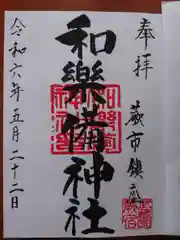 奉拝
蕨市鎮座
和樂備神社
令和六年五月二十二日